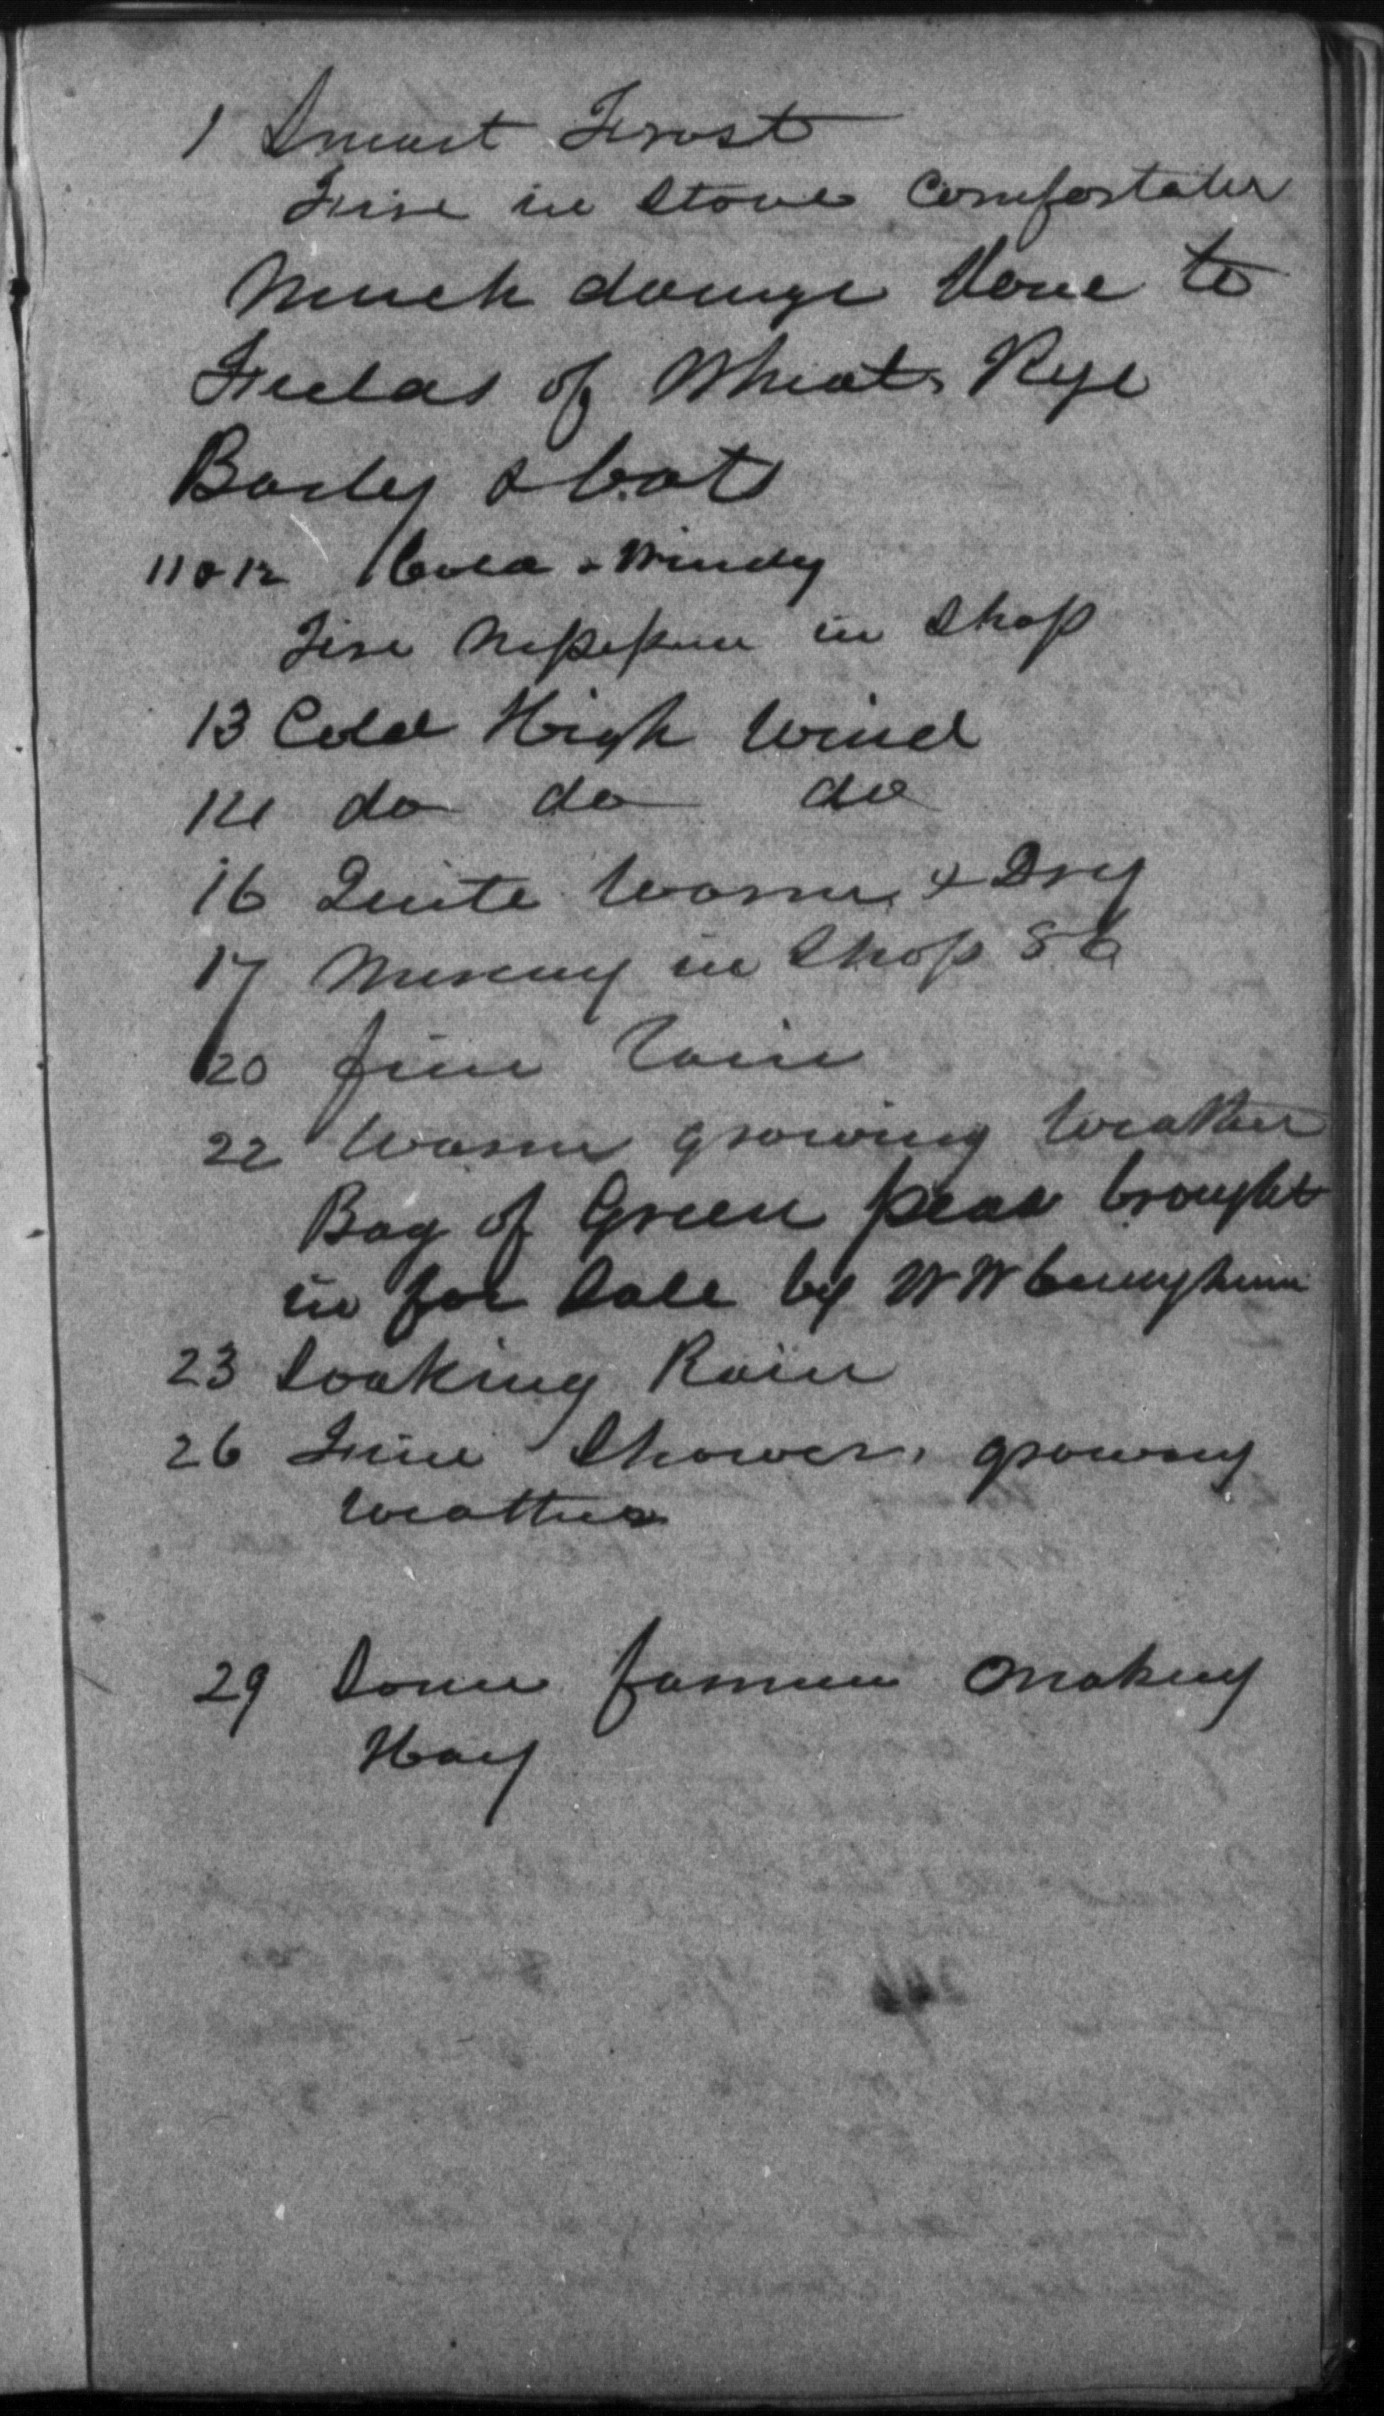 1 Smart Frost
Fire in Stove Comfortable
Much damage done to
Fields of Wheat, Rye
Barley & Oats
11 & 12 Cold & Windy
Fire in Shop
13 Cold High Wind
14 do do do
16 Quite Warm & Dry
17 Mercury in Shop 86
20 fine rain
22 Warm growing Weather
Bag of Green peas brought
in for Sale by W W Cuningham
23 Soaking Rain
26 Fine Shower, growing
Weather
29 Some farmers making
Hay